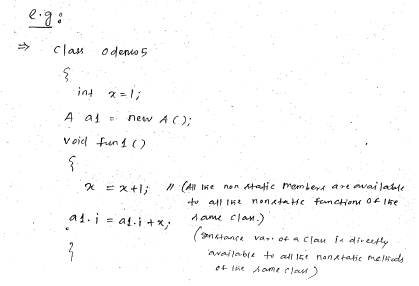 e.g :
⇒ class Odemo5
{
int x=1;
A a1 = new A();
void fun1()
{
x = x+1; // (All the non static members are available
to all the nonstatic functions of the
a1.i = a1.i + x; same class.)
(instance var. of a class is directly
available to all the nonstatic methods
} of the same class)